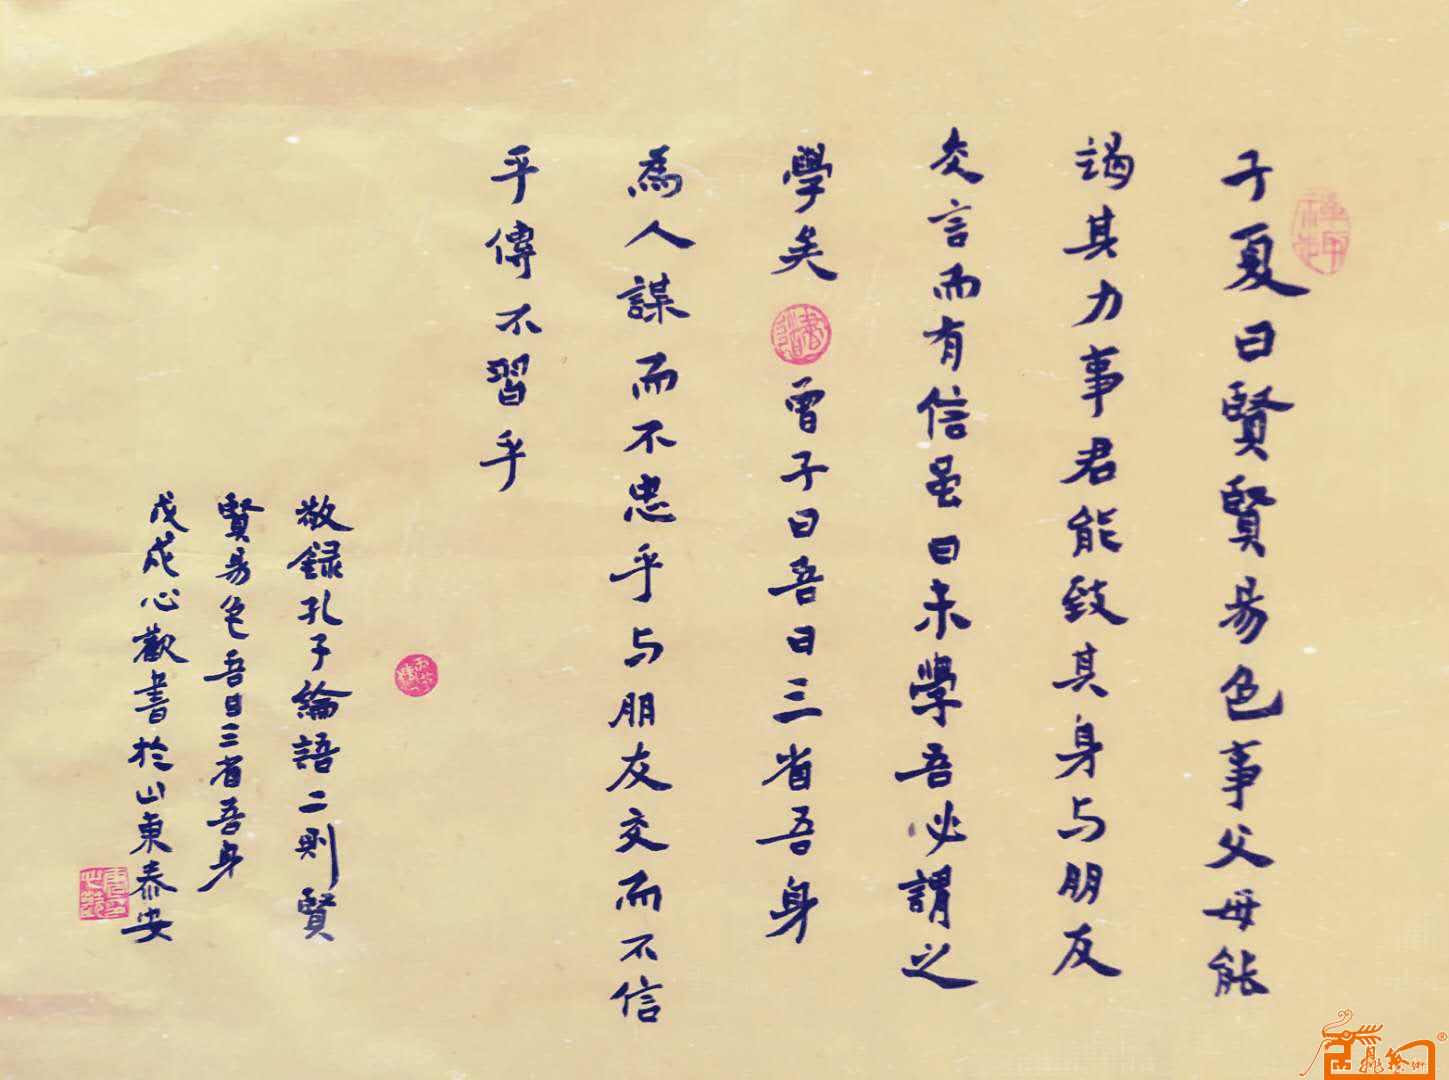 子夏曰賢賢易色事父母能
謁其力事君能致其身与朋友
交言而有信虽曰未學吾必謂之
學矣
曾子曰吾日三省吾身
為人謀而不忠乎与朋友交而不信
乎傳不習乎
敬録孔子論語二則賢
賢易色吾日三省吾身
戊戌心歡書於山東泰安